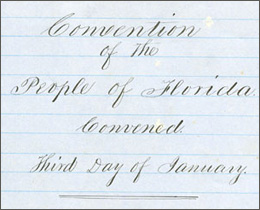 Convention
of the
People of Florida.
Convened.
Third Day of January.